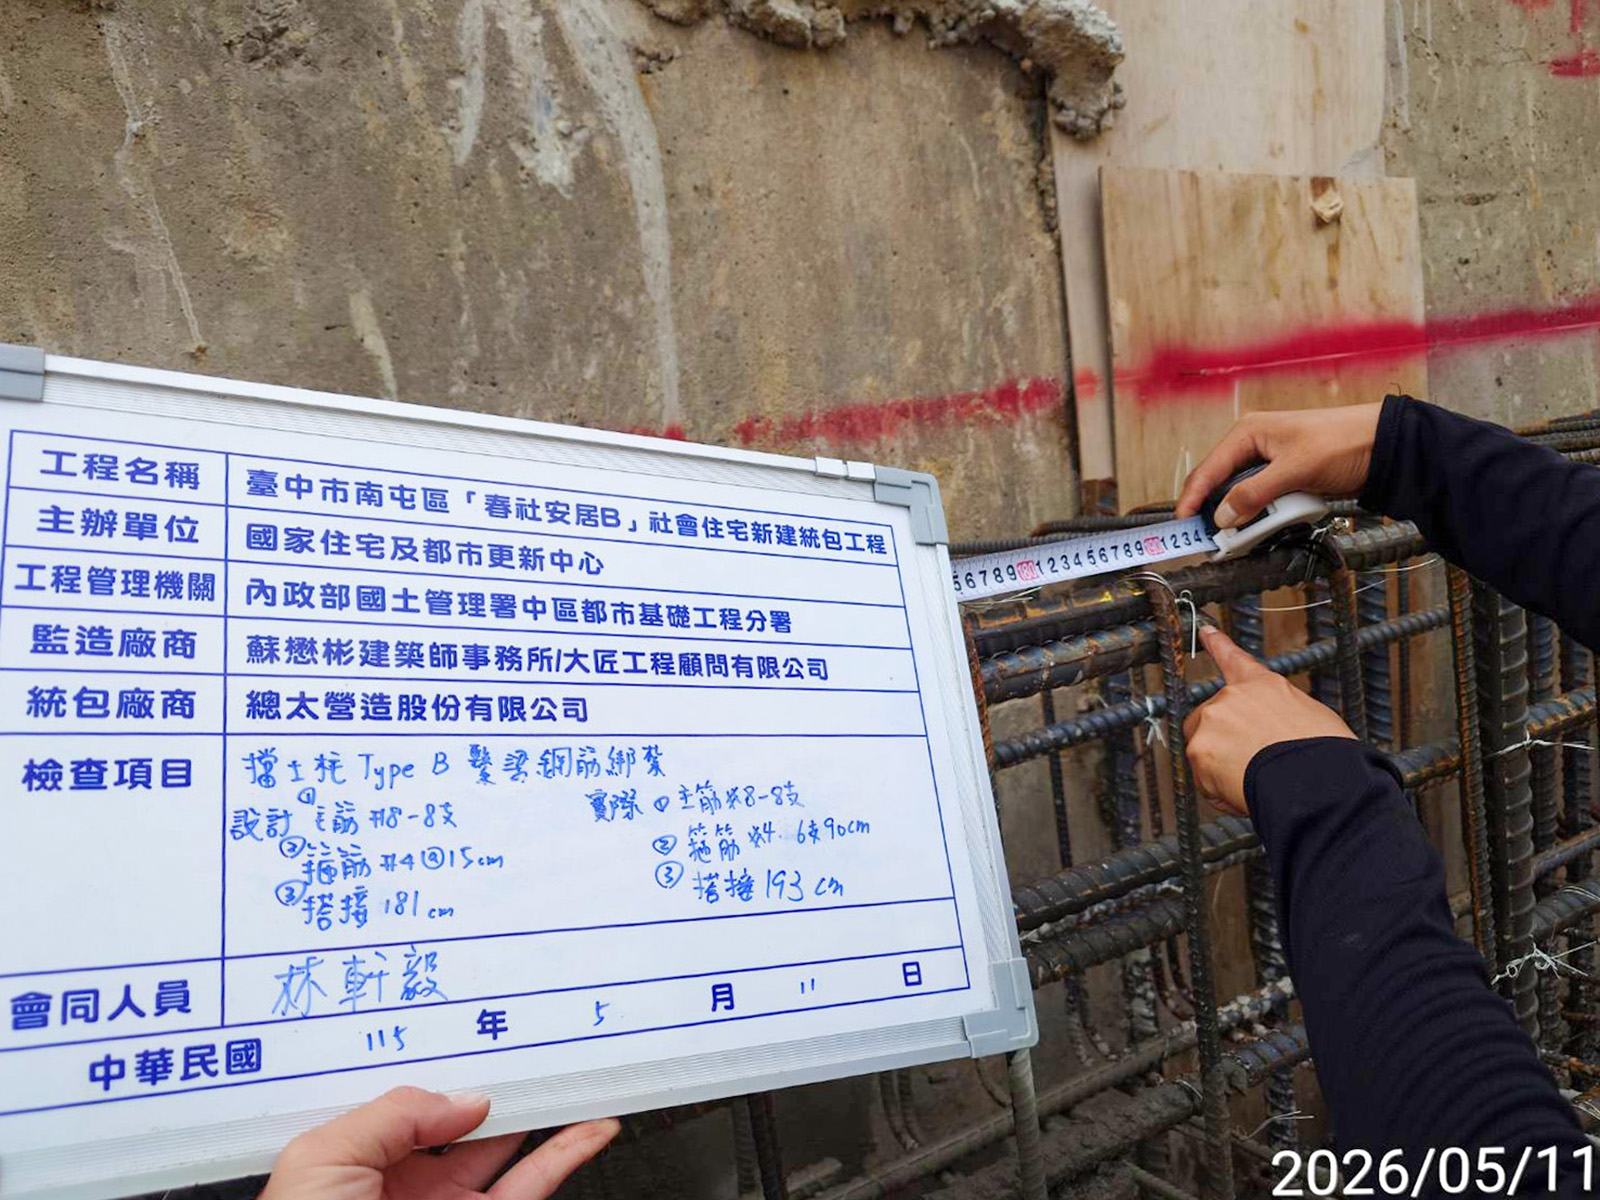 工程名稱 臺中市南屯區「春社安居B」社會住宅新建統包工程
主辦單位 國家住宅及都市更新中心
工程管理機關 內政部國土管理署中區都市基礎工程分署
監造廠商 蘇懋彬建築師事務所/大匠工程顧問有限公司
統包廠商 總太營造股份有限公司
檢查項目 擋土柱 Type B 繫梁鋼筋綁紮
設計 ① 主筋 #8-8支 實際 ① 主筋 #8-8支
② 箍筋 #4@15cm ② 箍筋 #4 6支90cm
③ 搭接 181cm ③ 搭接 193cm
會同人員 林軒毅
中華民國 115 年 5 月 11 日
5 6 7 8 9 180 1 2 3 4 5 6 7 8 9 190 1 2 3 4
2026/05/11